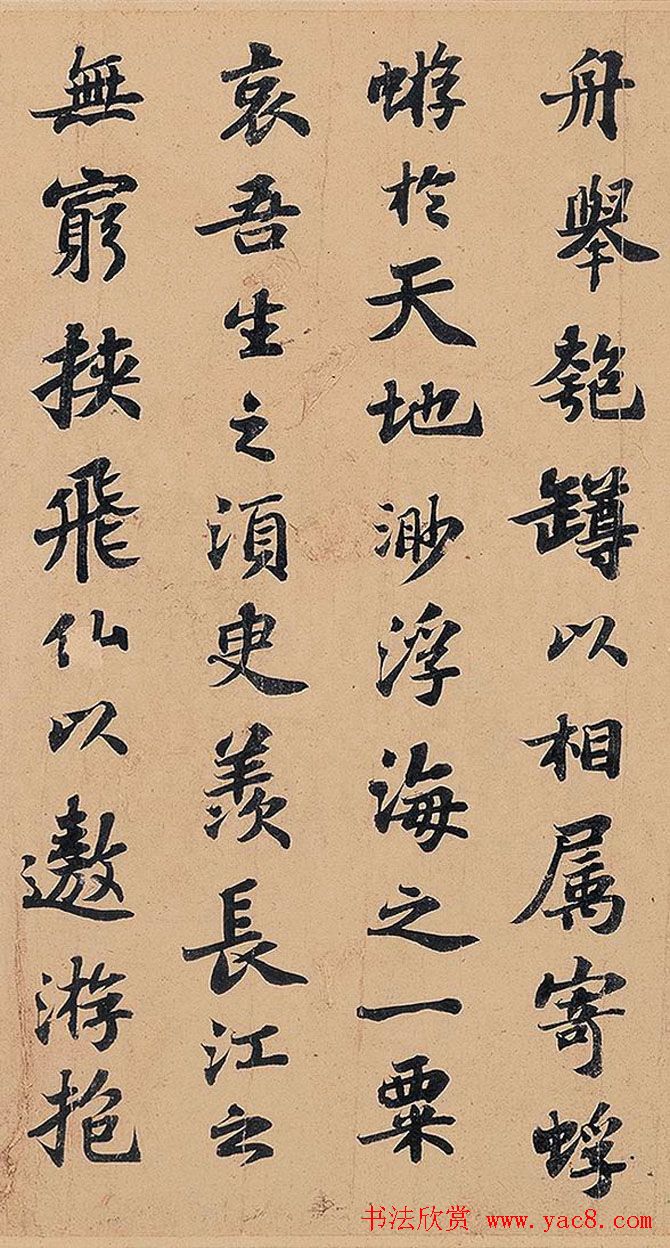 舟舉匏罇以相属寄蜉
蝣於天地渺浮海之一粟
哀吾生之須臾羨長江之
無窮挾飛仙以遨游抱
书法欣赏 www.yac8.com